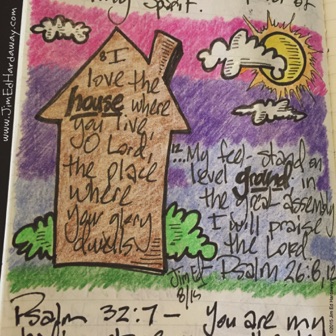 my Spirit.
www.JimEdHardaway.com
8 I
love the
house where
you live,
O Lord,
the place
where
your glory
dwells.
12 ...My feet stand on
level ground in
the great assembly
I will praise
the Lord.
Psalm 26:8,12
Jim Ed
8/15
Psalm 32:7 – You are my